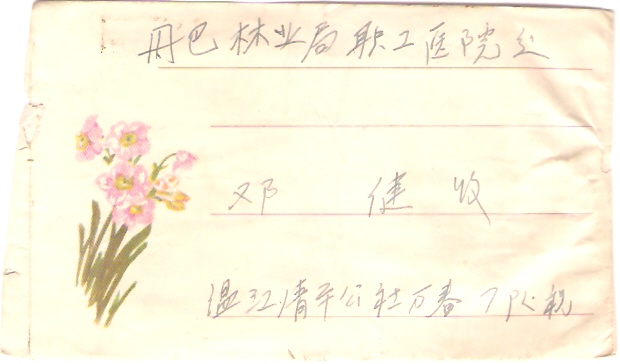 丹巴林业局职工医院交
邓 健 收
温江清平公社万春7队